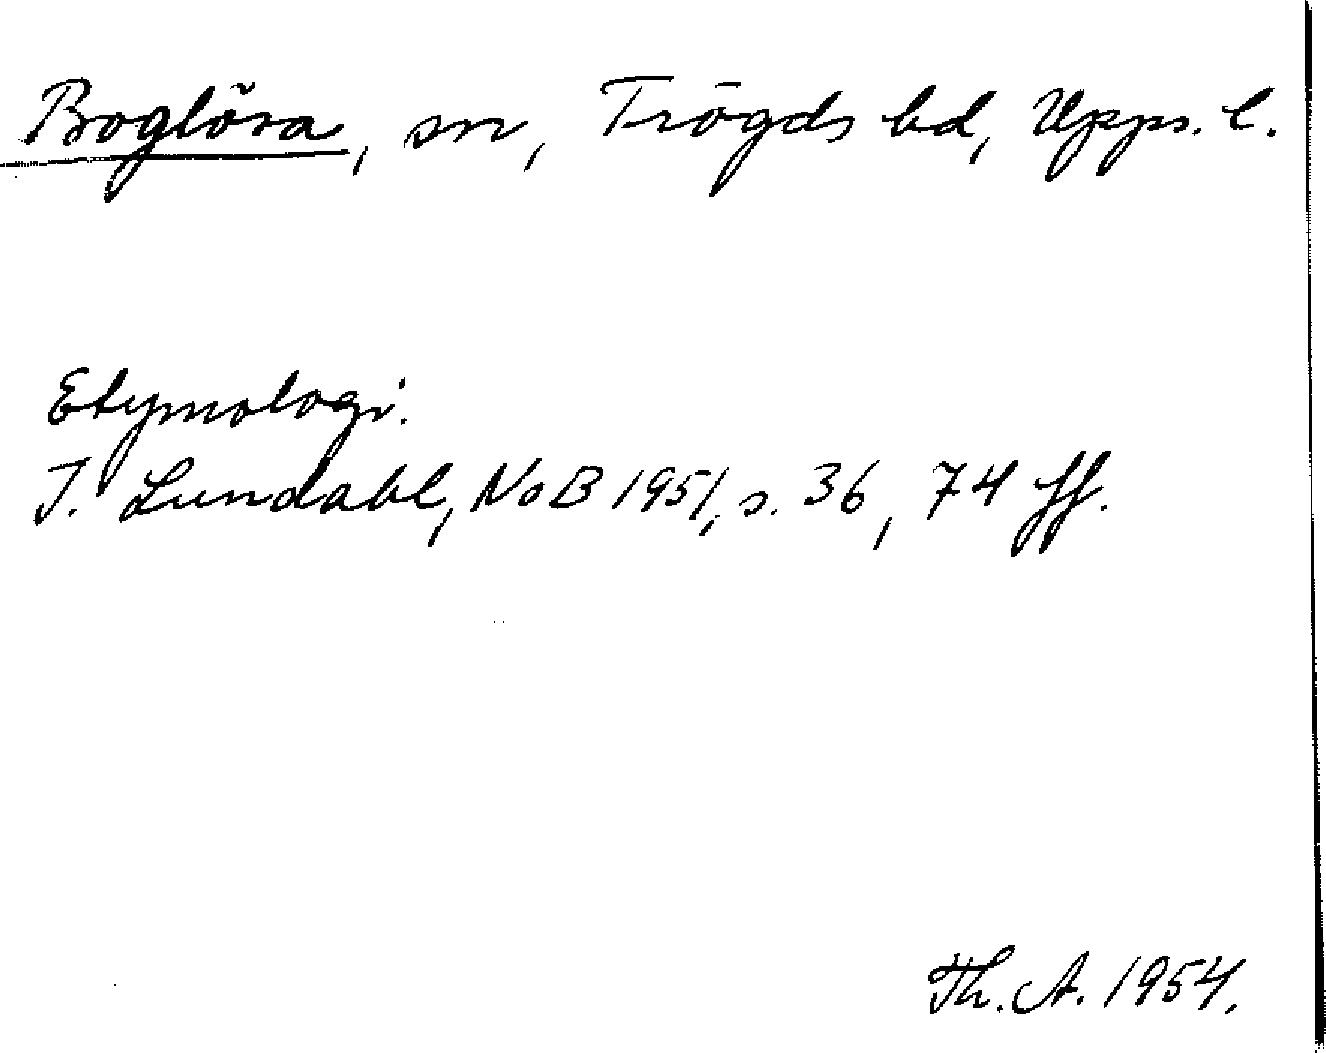 Boglösa, sn, Trögds hd, Upps. l.
Etymologi.
I. Lundahl, NoB 1951, s. 36, 74 ff.
Th. A. 1954.